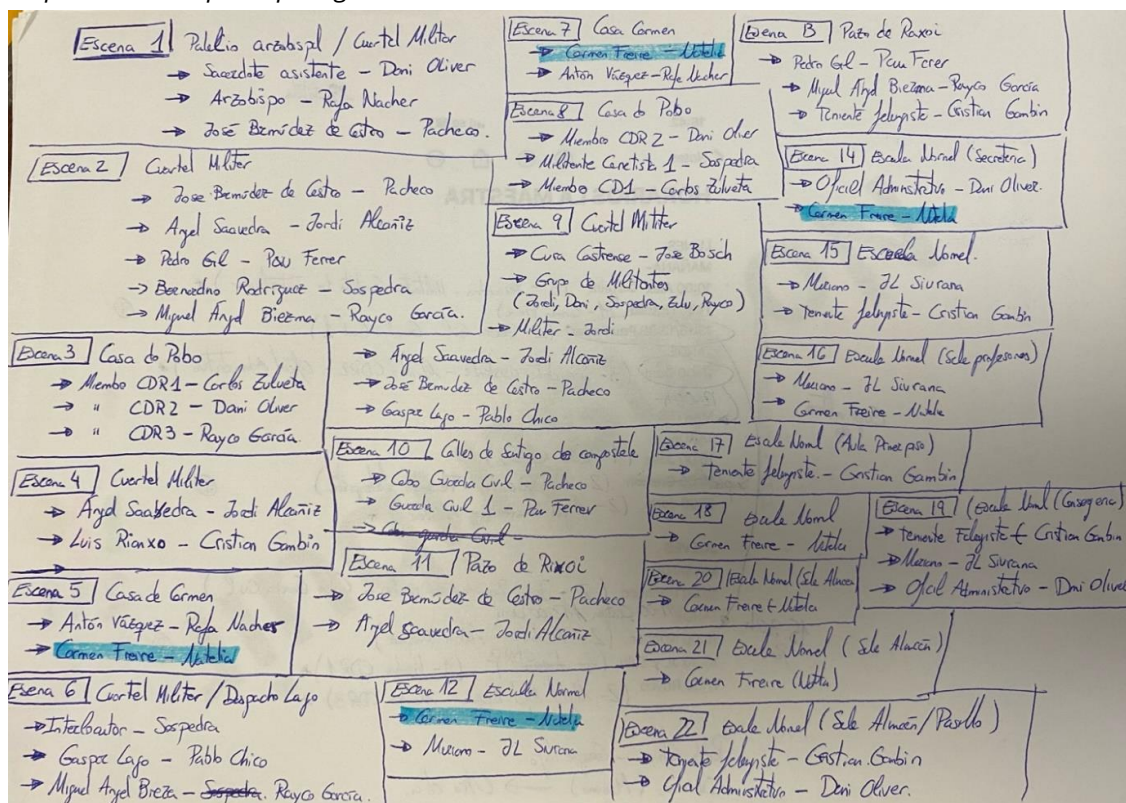 Escena 1 Palacio arzobspl / Cuartel Militar
→ Sacerdote asistente - Dani Oliver
→ Arzobispo - Rafa Nacher
→ José Bermúdez de Castro - Pacheco.
Escena 2 Cuartel Militar
→ Jose Bermúdez de Castro - Pacheco
→ Angel Saavedra - Jordi Alcañiz
→ Pedro Gil - Pau Ferrer
→ Bernardino Rodríguez - Sospedra
→ Miguel Ángel Biezma - Rayco García.
Escena 3 Casa do Pobo
→ Miembo CDR1 - Carlos Zulueta
→ " CDR2 - Dani Oliver
→ " CDR3 - Rayco García.
Escena 4 Cuartel Militar
→ Ángel Saavedra - Jordi Alcañiz
→ Luis Rianxo - Cristian Gambin
→
Escena 5 Casa de Carmen
→ Antón Vázquez - Rafa Nacher
→ Carmen Freire - Natalia
Escena 6 Cuartel Militar / Despacho Lago
→ Interlocutor - Sospedra
→ Gaspar Lago - Pablo Chico
→ Miguel Angel Bieza - Sospedra. Rayco García.
Escena 7 Casa Carmen
→ Carmen Freire - Natalia
→ Antón Vázquez - Rafa Nacher
Escena 8 Casa do Pobo
→ Miembro CDR 2 - Dani Oliver
→ Militante Cenetista 1 - Sospedra
→ Miembo CD1 - Carlos Zulueta
Escena 9 Cuartel Militar
→ Cura Castrense - Jose Bosch
→ Grupo de Militantes
(Jordi, Dani, Sospedra, Zulu, Rayco)
→ Militar - Jordi
→ Ángel Saavedra - Jordi Alcañiz
→ José Bermudez de Castro - Pacheco
→ Gaspar Lago - Pablo Chico
Escena 10 Calles de Santiago de compostela
→ Cabo Guardia Civil - Pacheco
→ Guardia Civil 1 - Pau Ferrer
→ guardia Civil -
Escena 11 Pazo de Raxoi
→ Jose Bermúdez de Castro - Pacheco
→ Angel Saavedra - Jordi Alcañiz
Escena 12 Escuela Normal
→ Carmen Freire - Natalia
→ Muriano - JL Siurana
Escena 13 Pazo de Raxoi
→ Pedro Gil - Pau Ferrer
→ Miguel Ángel Biezma - Rayco García
→ Teniente falangista - Cristian Gambin
Escena 14 Escuela Normal (Secretaria)
→ Oficial Administrativo - Dani Oliver.
→ Carmen Freire - Natalia
Escena 15 Escuela Normal.
→ Muriano - JL Siurana
→ Teniente falangista - Cristian Gambin
Escena 16 Escuela Normal (Sala profesores)
→ Muriano - JL Siurana
→ Carmen Freire - Natalia
Escena 17 Escuela Normal (Aula Primer piso)
→ Teniente falangista. - Cristian Gambin
Escena 18 Escuela Normal
→ Carmen Freire - Natalia
Escena 19 (Escuela Normal (Conserjeria)
→ Teniente Falangista - Cristian Gambin
→ Muriano - JL Siurana
→ Oficial Administrativo - Dani Oliver
Escena 20 Escuela Normal (Sala Almacén
→ Carmen Freire - Natalia
Escena 21 Escuela Normal (Sala Almacén)
→ Carmen Freire (Natalia)
Escena 22 Escuela Normal (Sala Almacén / Pasillo)
→ Teniente falangista - Cristian Gambin
→ Oficial Administrativo - Dani Oliver.